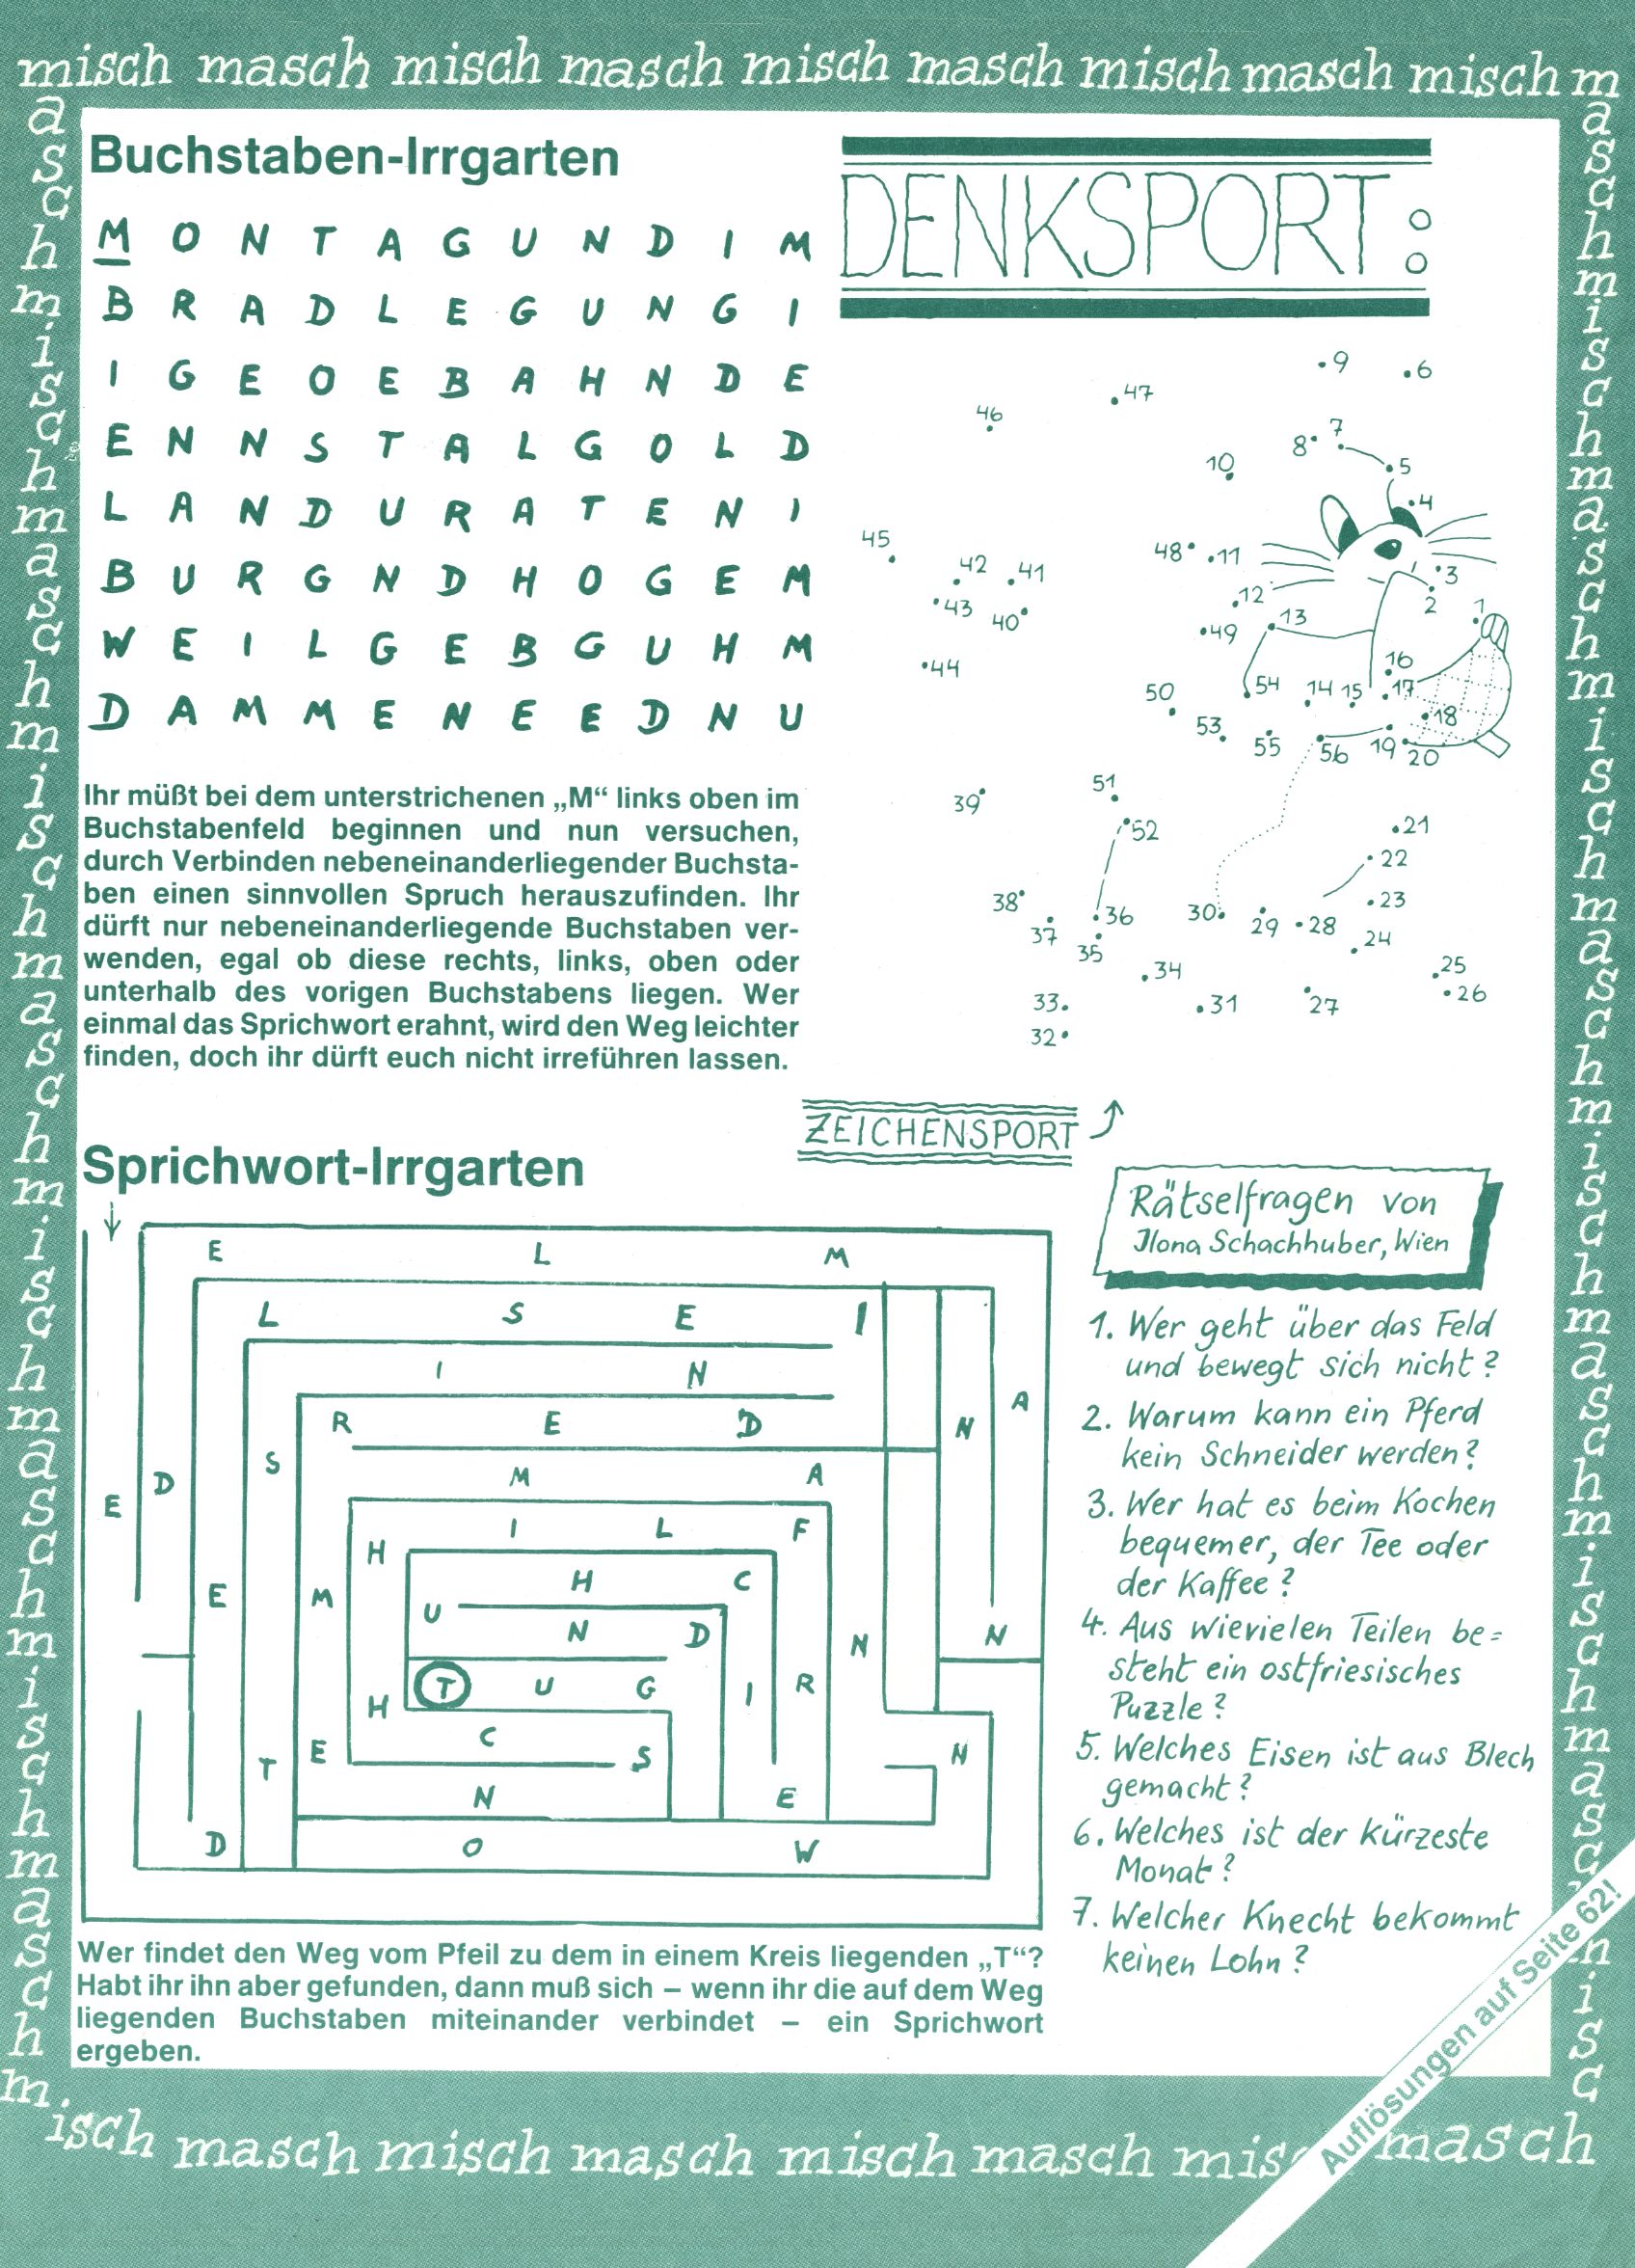 misch masch misch masch misch masch misch masch misch m
a s c h m i s c h m a s c h m i s c h m a s c h m i s c h m a s c h m i s c h m a s c h m
a s c h m i s c h m a s c h m i s c h m a s c h m i s c h m a s c h m i s c h m a s c h m i s c
Buchstaben-Irrgarten
M O N T A G U N D I M
B R A D L E G U N G I
I G E O E B A H N D E
E N N S T A L G O L D
L A N D U R A T E N I
B U R G N D H O G E M
W E I L G E B G U H M
D A M M E N E E D N U
Ihr müßt bei dem unterstrichenen „M“ links oben im
Buchstabenfeld beginnen und nun versuchen,
durch Verbinden nebeneinanderliegender Buchsta-
ben einen sinnvollen Spruch herauszufinden. Ihr
dürft nur nebeneinanderliegende Buchstaben ver-
wenden, egal ob diese rechts, links, oben oder
unterhalb des vorigen Buchstabens liegen. Wer
einmal das Sprichwort erahnt, wird den Weg leichter
finden, doch ihr dürft euch nicht irreführen lassen.
DENKSPORT:
9 6
47
46
7
8
5
10
4
45
48 11
42 41
3
12 2
43 40 13 1
49
44 16
54 14 15 17
50
18
53 55 56 19 20
51
39
52 21
22
38 23
36 30 29 28
37 24
35
34 25
26
33 31 27
32
ZEICHENSPORT
Sprichwort-Irrgarten
E L M
L S E I
I N
A
R E D N
S
M A
D
E
I L F
H
H C
E M
U
N D N N
T U G I R
H
C
E S N
T
N E
D O W
Wer findet den Weg vom Pfeil zu dem in einem Kreis liegenden „T“?
Habt ihr ihn aber gefunden, dann muß sich – wenn ihr die auf dem Weg
liegenden Buchstaben miteinander verbindet – ein Sprichwort
ergeben.
Rätselfragen von
Ilona Schachhuber, Wien
1. Wer geht über das Feld
und bewegt sich nicht?
2. Warum kann ein Pferd
kein Schneider werden?
3. Wer hat es beim Kochen
bequemer, der Tee oder
der Kaffee?
4. Aus wievielen Teilen be=
steht ein ostfriesisches
Puzzle?
5. Welches Eisen ist aus Blech
gemacht?
6. Welches ist der kürzeste
Monat?
7. Welcher Knecht bekommt
keinen Lohn?
Auflösungen auf Seite 62!
isch masch misch masch misch masch mis masch